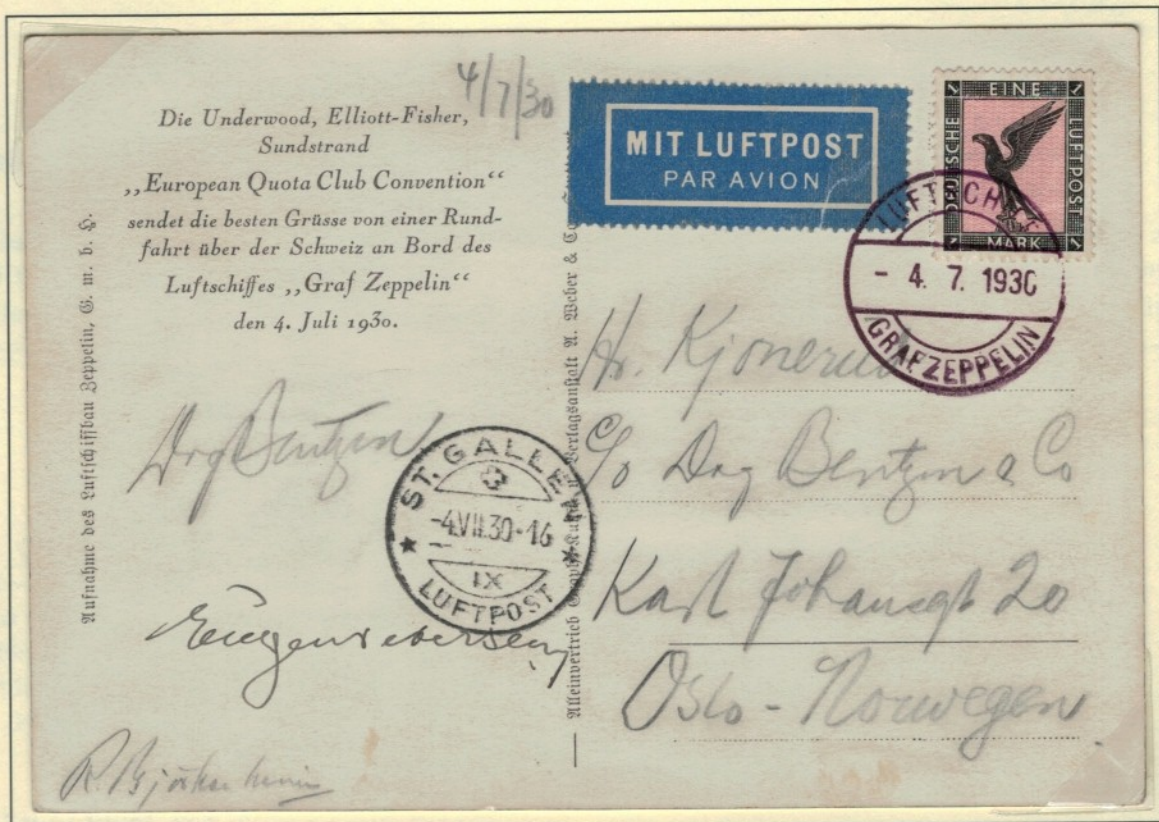 4/7/30
Die Underwood, Elliott-Fisher,
Sundstrand
„European Quota Club Convention“
sendet die besten Grüsse von einer Rund-
fahrt über der Schweiz an Bord des
Luftschiffes „Graf Zeppelin“
den 4. Juli 1930.
Aufnahme des Luftschiffbau Zeppelin, G. m. b. H.
Dag Bentzen
ST. GALLEN
-4.VII.30-16
IX
LUFTPOST
Alleinvertrieb Verlagsanstalt A. Weber & Co
MIT LUFTPOST
PAR AVION
1 EINE 1
DEUTSCHE
LUFTPOST
1 MARK 1
LUFTSCHIFF
- 4. 7. 1930
GRAF ZEPPELIN
Hr.
c/o Dag Bentzen & Co
Karl Johansgt 20
Oslo - Norwegen